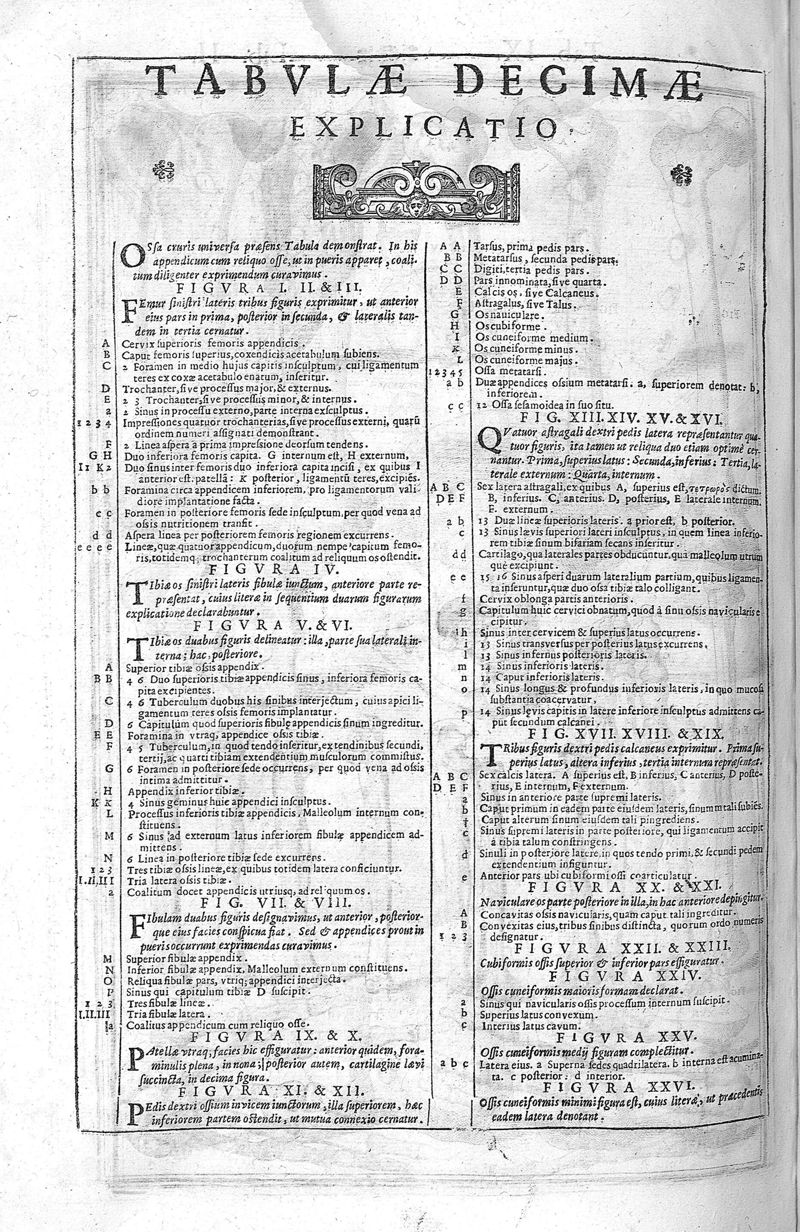 TABVLÆ DECIMÆ
EXPLICATIO.
OSsa cruris universa præsens Tabula demonstrat. In his
appendicum cum reliquo osse, ut in pueris apparet, coali-
tum diligenter exprimendum curavimus.
FIGVRA I. II. & III.
FEmur sinistri lateris tribus figuris exprimitur, ut anterior
eius pars in prima, posterior in secunda, & lateralis tan-
dem in tertia cernatur.
A Cervix superioris femoris appendicis.
B Caput femoris superius, coxendicis acetabulum subiens.
C 2 Foramen in medio hujus capitis insculptum, cui ligamentum
teres ex coxæ acetabulo enatum, inseritur.
D Trochanter, sive processus major, & externus.
E 2 3 Trochanter, sive processus minor, & internus.
a 2 Sinus in processu externo, parte interna exsculptus.
1 2 3 4 Impressiones quatuor trochanterias, sive processus externi, quarũ
ordinem numeri assignati demonstrant.
F 2 Linea aspera à prima impressione deorsum tendens.
G H Duo inferiora femoris capita. G internum est, H externum,
I 1 K 2 Duo sinus inter femoris duo inferiora capita incisi, ex quibus I
anterior est patellæ: K posterior, ligamentũ teres, excipiés.
b b Foramina circa appendicem inferiorem, pro ligamentorum vali-
diore implantatione facta.
c c Foramen in posteriore femoris sede insculptum, per quod vena ad
ossis nutritionem transit.
d d Aspera linea per posteriorem femoris regionem excurrens.
e e e e Lineæ, quæ quatuor appendicum, duorum nempe capitum femo-
ris, totidemq; trochanterum coalitum ad reliquum os ostendit.
FIGVRA IV.
TIbiæ os sinistri lateris fibulæ iunctum, anteriore parte re-
præsentat, cuius literæ in sequentium duarum figurarum
explicatione declarabuntur.
FIGVRA V. & VI.
TIbiæ os duabus figuris delineatur: illa, parte sua laterali in-
terna; hac, posteriore.
A Superior tibiæ ossis appendix.
B B 4 6 Duo superioris tibiæ appendicis sinus, inferiora femoris ca-
pita excipientes.
C 4 6 Tuberculum duobus his sinibus interjectum, cuius apici li-
gamentum teres ossis femoris implantatur.
D 6 Capitulum quod superioris fibulę appendicis sinum ingreditur.
E E Foramina in vtraq; appendice ossis tibiæ.
F 4 5 Tuberculum, in quod tendo inseritur, ex tendinibus secundi,
tertij, ac quarti tibiam extendentium musculorum commistus.
G 6 Foramen in posteriore sede occurrens, per quod vena ad ossis
intima admittitur.
H Appendix inferior tibiæ.
K K 4 Sinus geminus huic appendici insculptus.
L Processus inferioris tibiæ appendicis, Malleolum internum con-
stituens.
M 6 Sinus ad externum latus inferiorem fibulæ appendicem ad-
mittens.
N 6 Linea in posteriore tibiæ sede excurrens.
1 2 3 Tres tibiæ ossis lineæ, ex quibus totidem latera conficiuntur.
I.II.III Tria latera ossis tibiæ.
a Coalitum docet appendicis utriusq; ad reliquum os.
FIG. VII. & VIII.
FIbulam duabus figuris designavimus, ut anterior, posterior-
que eius facies conspicua fiat. Sed & appendices prout in
pueris occurrunt exprimendas curavimus.
M Superior fibulæ appendix.
N Inferior fibulæ appendix. Malleolum externum constituens.
O Reliqua fibulæ pars, vtriq; appendici interjecta.
P Sinus qui capitulum tibiæ D suscipit.
1 2 3 Tres fibulæ lineæ.
I.II.III Tria fibulæ latera.
a Coalitus appendicum cum reliquo osse.
FIGVRA IX. & X.
PAtellæ vtraq; facies hic effiguratur: anterior quidem, fora-
minulis plena, in nona; posterior autem, cartilagine lævi
succincta, in decima figura.
FIGVRA XI. & XII.
PEdis dextri ossium invicem iunctorum, illa superiorem, hæc
inferiorem partem ostendit, ut mutua connexio cernatur.
A A Tarsus, prima pedis pars.
B B Metatarsus, secunda pedis pars.
C C Digiti, tertia pedis pars.
D D Pars innominata, sive quarta.
E Calcis os, sive Calcaneus.
F Astragalus, sive Talus.
G Os naviculare.
H Os cubiforme.
I Os cuneiforme medium.
K Os cuneiforme minus.
L Os cuneiforme majus.
1 2 3 4 5 Ossa metatarsi.
a b Duæ appendices ossium metatarsi. a, superiorem denotat: b,
inferiorem.
c c 12 Ossa sesamoidea in suo situ.
FIG. XIII. XIV. XV. & XVI.
QVatuor astragali dextri pedis latera repræsentantur qua-
tuor figuris, ita tamen ut reliqua duo etiam optimè cer-
nantur. Prima, superius latus: Secunda, inferius: Tertia, la-
terale externum: Quarta, internum.
A B C Sex latera astragali, ex quibus A, superius est, dictum.
D E F B, inferius. C, anterius. D, posterius, E laterale internum.
F. externum.
a b 13 Duæ lineæ superioris lateris. a prior est, b posterior.
c 13 Sinus lævis superiori lateri insculptus, in quem linea inferio-
rem tibiæ sinum bifariam secans inseritur.
d d Cartilago, qua laterales partes obducuntur, qua malleolum utrum-
que excipiunt.
e e 15 16 Sinus asperi duarum lateralium partium, quibus ligamen-
ta inseruntur, quæ duo ossa tibiæ talo colligant.
f Cervix oblonga partis anterioris.
g Capitulum huic cervici obnatum, quod à sinu ossis navicularis ex-
cipitur.
h Sinus inter cervicem & superius latus occurrens.
i 13 Sinus transversus per posterius latus excurrens.
l 13 Sinus infernus posterioris lateris.
m 14 Sinus inferioris lateris.
n 14 Caput inferioris lateris.
o 14 Sinus longus & profundus inferioris lateris, in quo mucosa
substantia coacervatur.
p 14 Sinus lęvis capitis in latere inferiore insculptus admittens ca-
put secundum calcanei.
FIG. XVII. XVIII. & XIX.
TRibus figuris dextri pedis calcaneus exprimitur. Prima su-
perius latus, altera inferius, tertia internum repræsentat.
A B C Sex calcis latera. A superius est, B inferius, C anterius, D poste-
D E F rius, E internum, F externum.
a Sinus in anteriore parte supremi lateris.
b Caput primum in eadem parte eiusdem lateris, sinum tali subiés.
† Caput alterum sinum eiusdem tali pingrediens.
c Sinus supremi lateris in parte posteriore, qui ligamentum accipit
à tibia talum constringens.
d Sinuli in posteriore latere, in quos tendo primi, & secundi pedem
extendentium infiguntur.
e Anterior pars ubi cubiformi ossi coarticulatur.
FIGVRA XX. & XXI.
Naviculare os parte posteriore in illa, in hac anteriore depingitur.
A Concavitas ossis navicularis, quam caput tali ingreditur.
B Convexitas eius, tribus sinibus distincta, quorum ordo numeris
1 2 3 designatur.
FIGVRA XXII. & XXIII.
Cubiformis ossis superior & inferior pars effiguratur.
FIGVRA XXIV.
Ossis cuneiformis maioris formam declarat.
a Sinus qui navicularis ossis processum internum suscipit.
b Superius latus convexum.
c Interius latus cavum.
FIGVRA XXV.
Ossis cuneiformis medij figuram complectitur.
a b c Latera eius. a Superna sedes quadrilatera. b interna est acumina-
ta. c posterior. d interior.
FIGVRA XXVI.
Ossis cuneiformis minimi figura est, cuius literæ, ut præcedentis
eadem latera denotant.